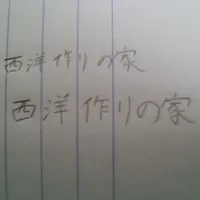 西洋作りの家
西洋作りの家